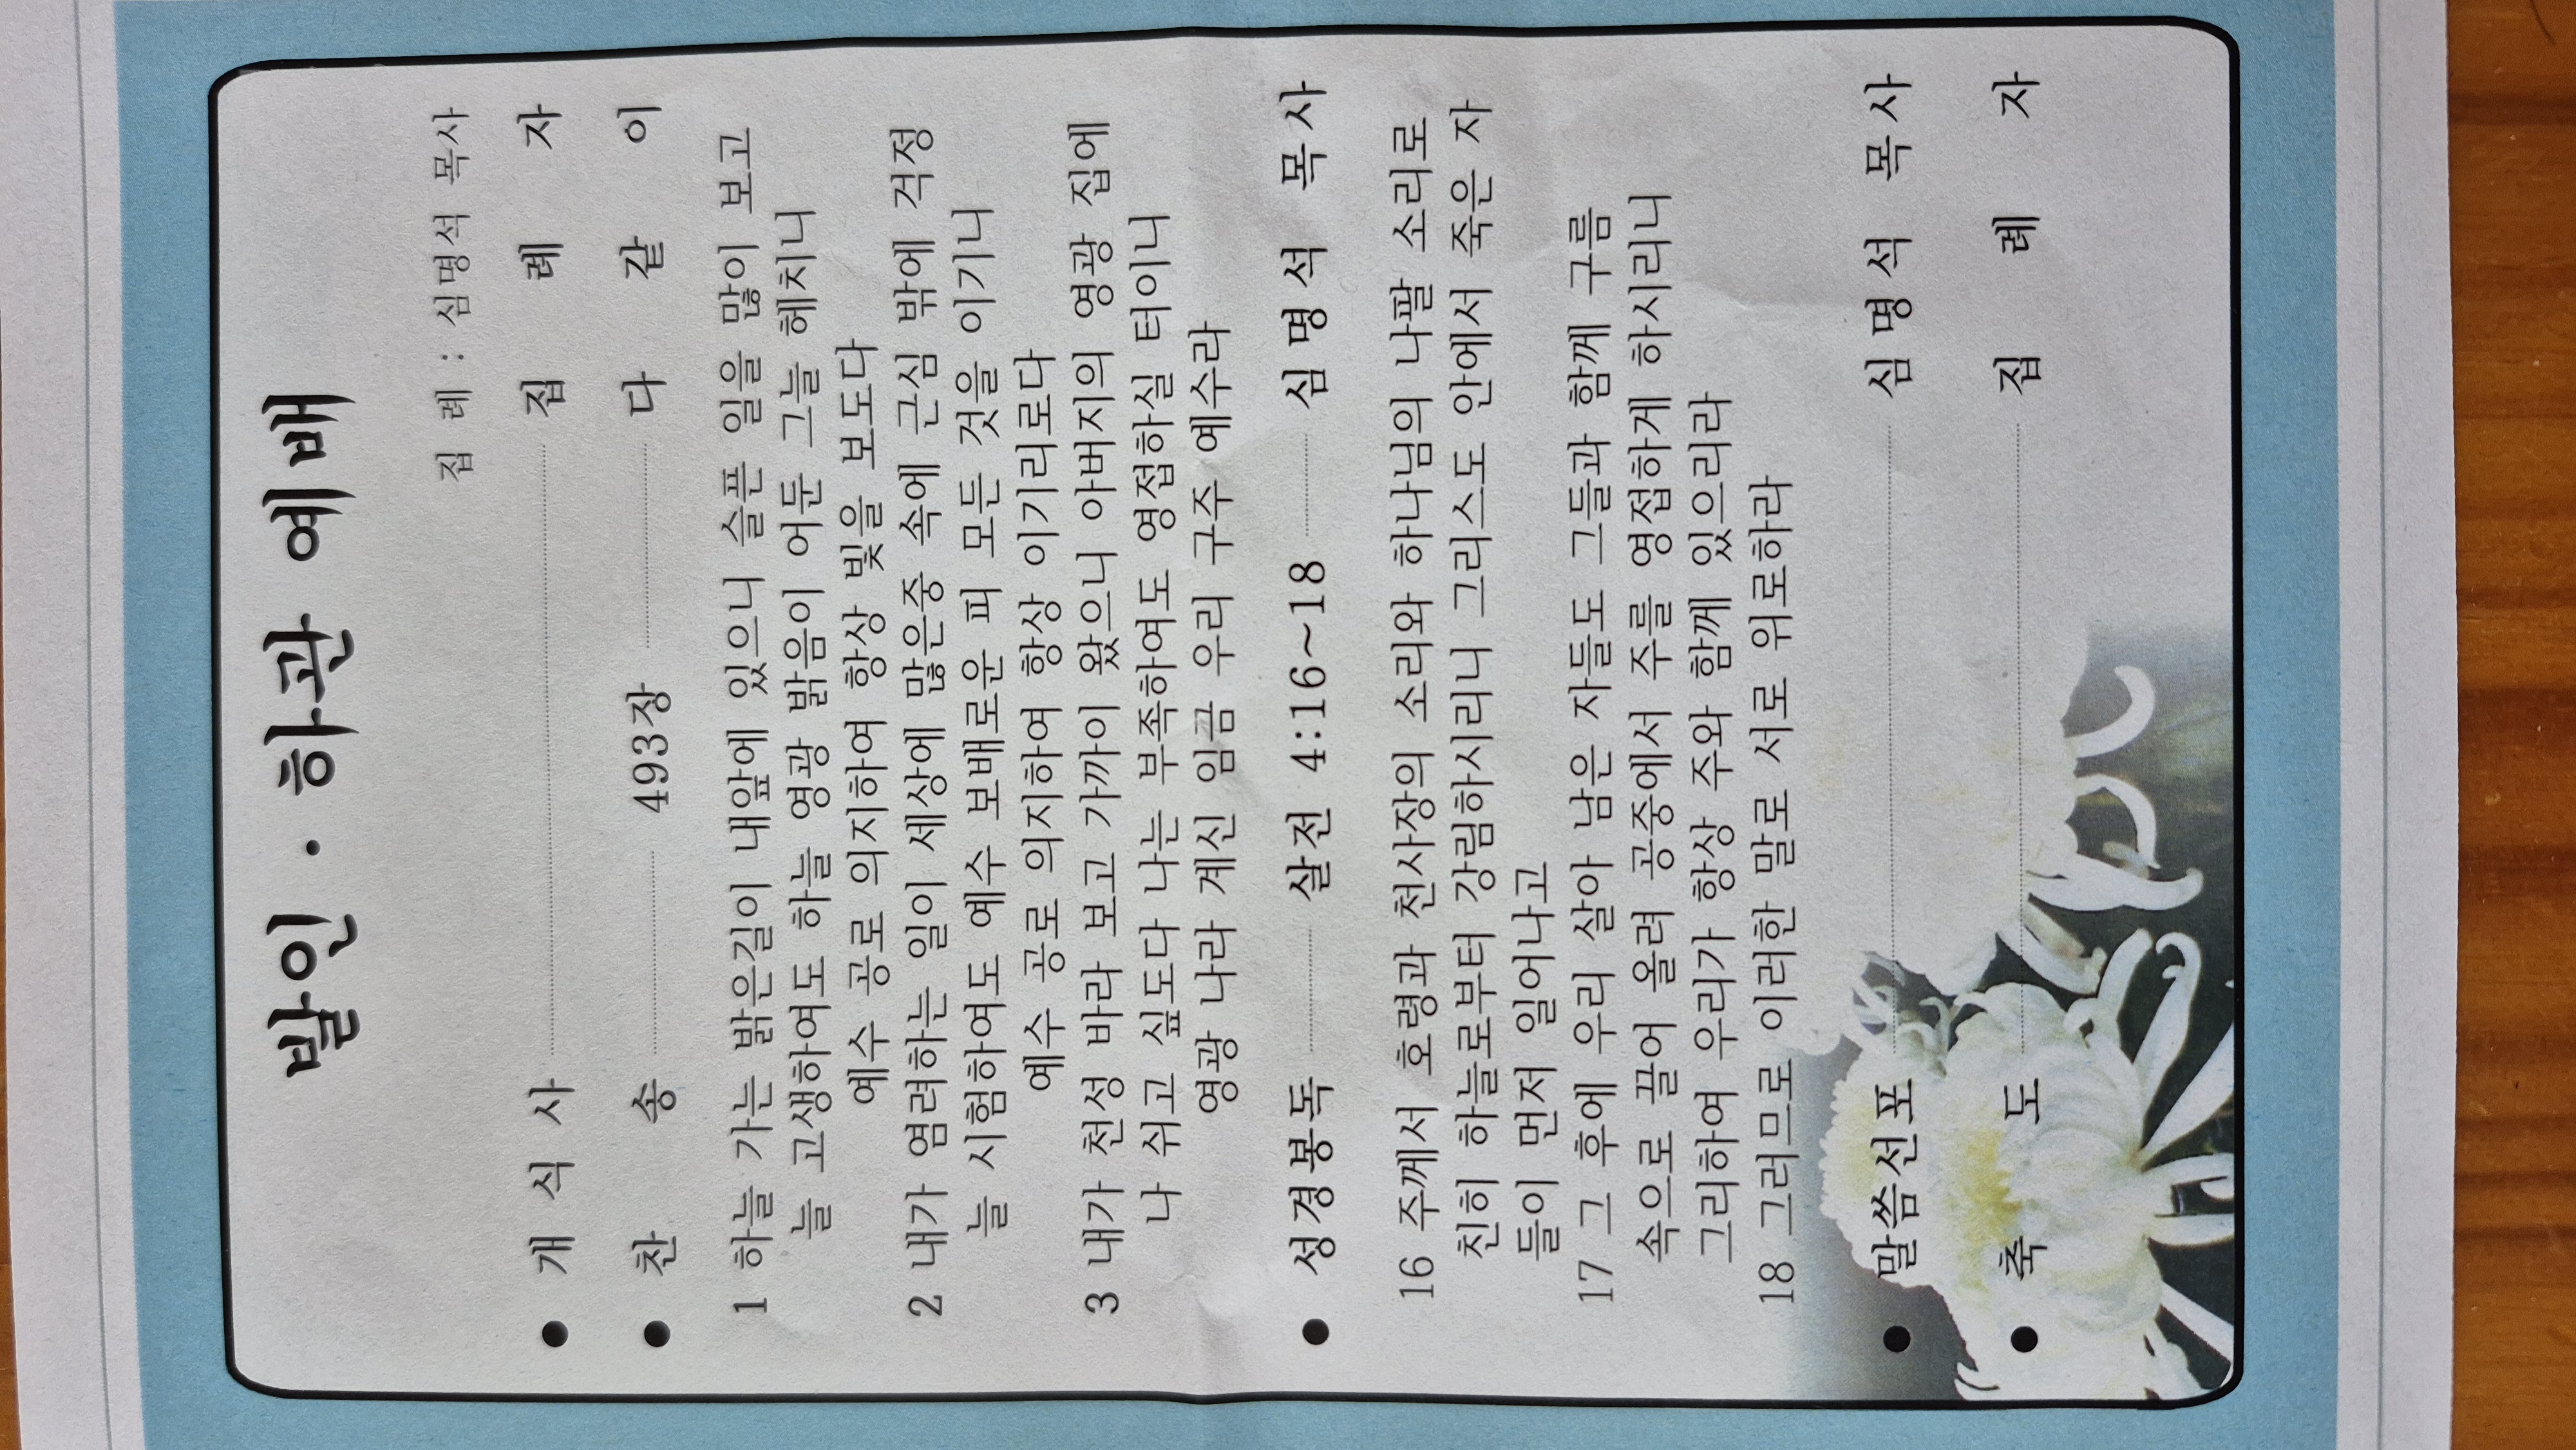 발인 · 하관 예배
집 례 : 심명석 목사
● 개 식 사 집 례 자
● 찬 송 493장 다 같 이
1 하늘 가는 밝은길이 내앞에 있으니 슬픈 일을 많이 보고
늘 고생하여도 하늘 영광 밝음이 어둔 그늘 헤치니
예수 공로 의지하여 항상 빛을 보도다
2 내가 염려하는 일이 세상에 많은중 속에 근심 밖에 걱정
늘 시험하여도 예수 보배로운 피 모든 것을 이기니
예수 공로 의지하여 항상 이기리로다
3 내가 천성 바라 보고 가까이 왔으니 아버지의 영광 집에
나 쉬고 싶도다 나는 부족하여도 영접하실 터이니
영광 나라 계신 임금 우리 구주 예수라
● 성경봉독 살전 4:16~18 심 명 석 목 사
16 주께서 호령과 천사장의 소리와 하나님의 나팔 소리로
친히 하늘로부터 강림하시리니 그리스도 안에서 죽은 자
들이 먼저 일어나고
17 그 후에 우리 살아 남은 자들도 그들과 함께 구름
속으로 끌어 올려 공중에서 주를 영접하게 하시리니
그리하여 우리가 항상 주와 함께 있으리라
18 그러므로 이러한 말로 서로 위로하라
● 말씀선포 심 명 석 목 사
● 축 도 집 례 자